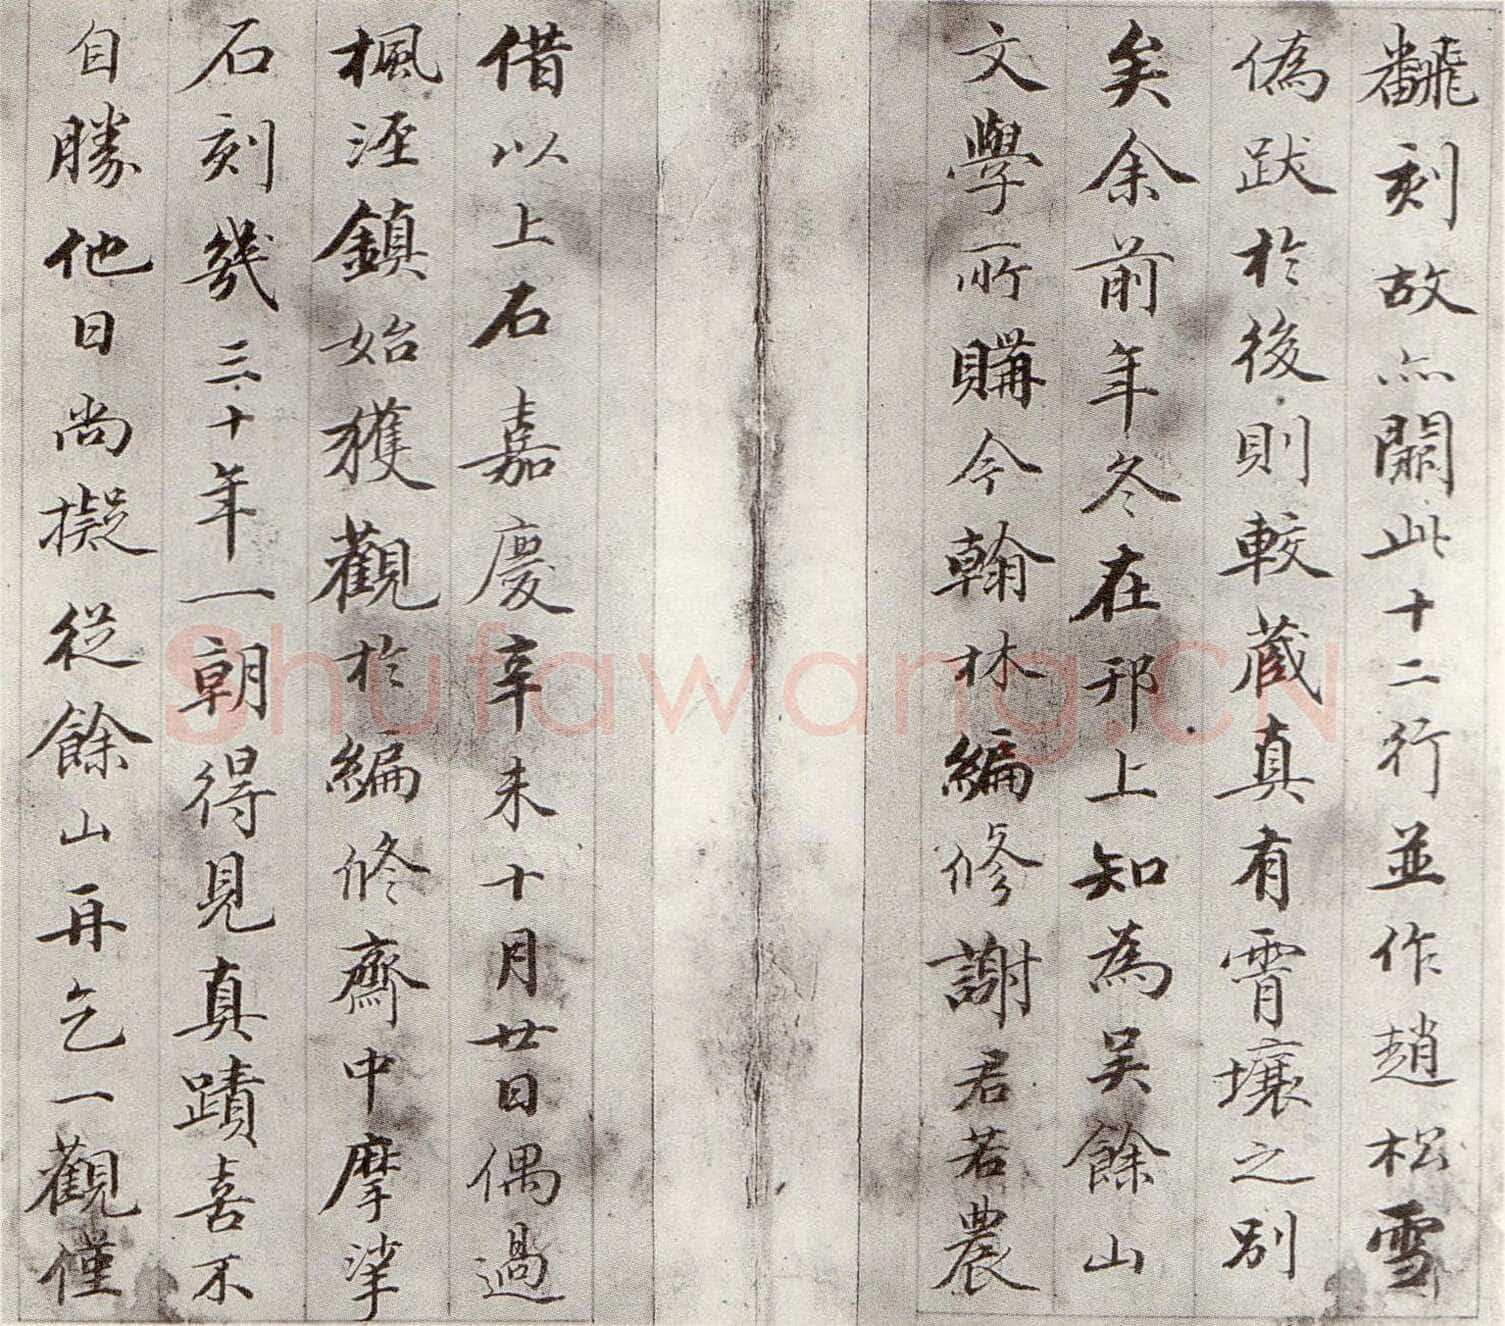 飜刻故亦闕此十二行並作趙松雪
偽跋於後則較蔵真有霄壤之別
矣余前年冬在邗上知為吴餘山
文學所購今翰林編修謝君若農
借以上石嘉慶辛未十月廿日偶過
楓涇鎮始獲觀於編修齋中摩挲
石刻幾三十年一朝得見真蹟喜不
自勝他日尚擬從餘山再乞一觀僅
shufawang.CN